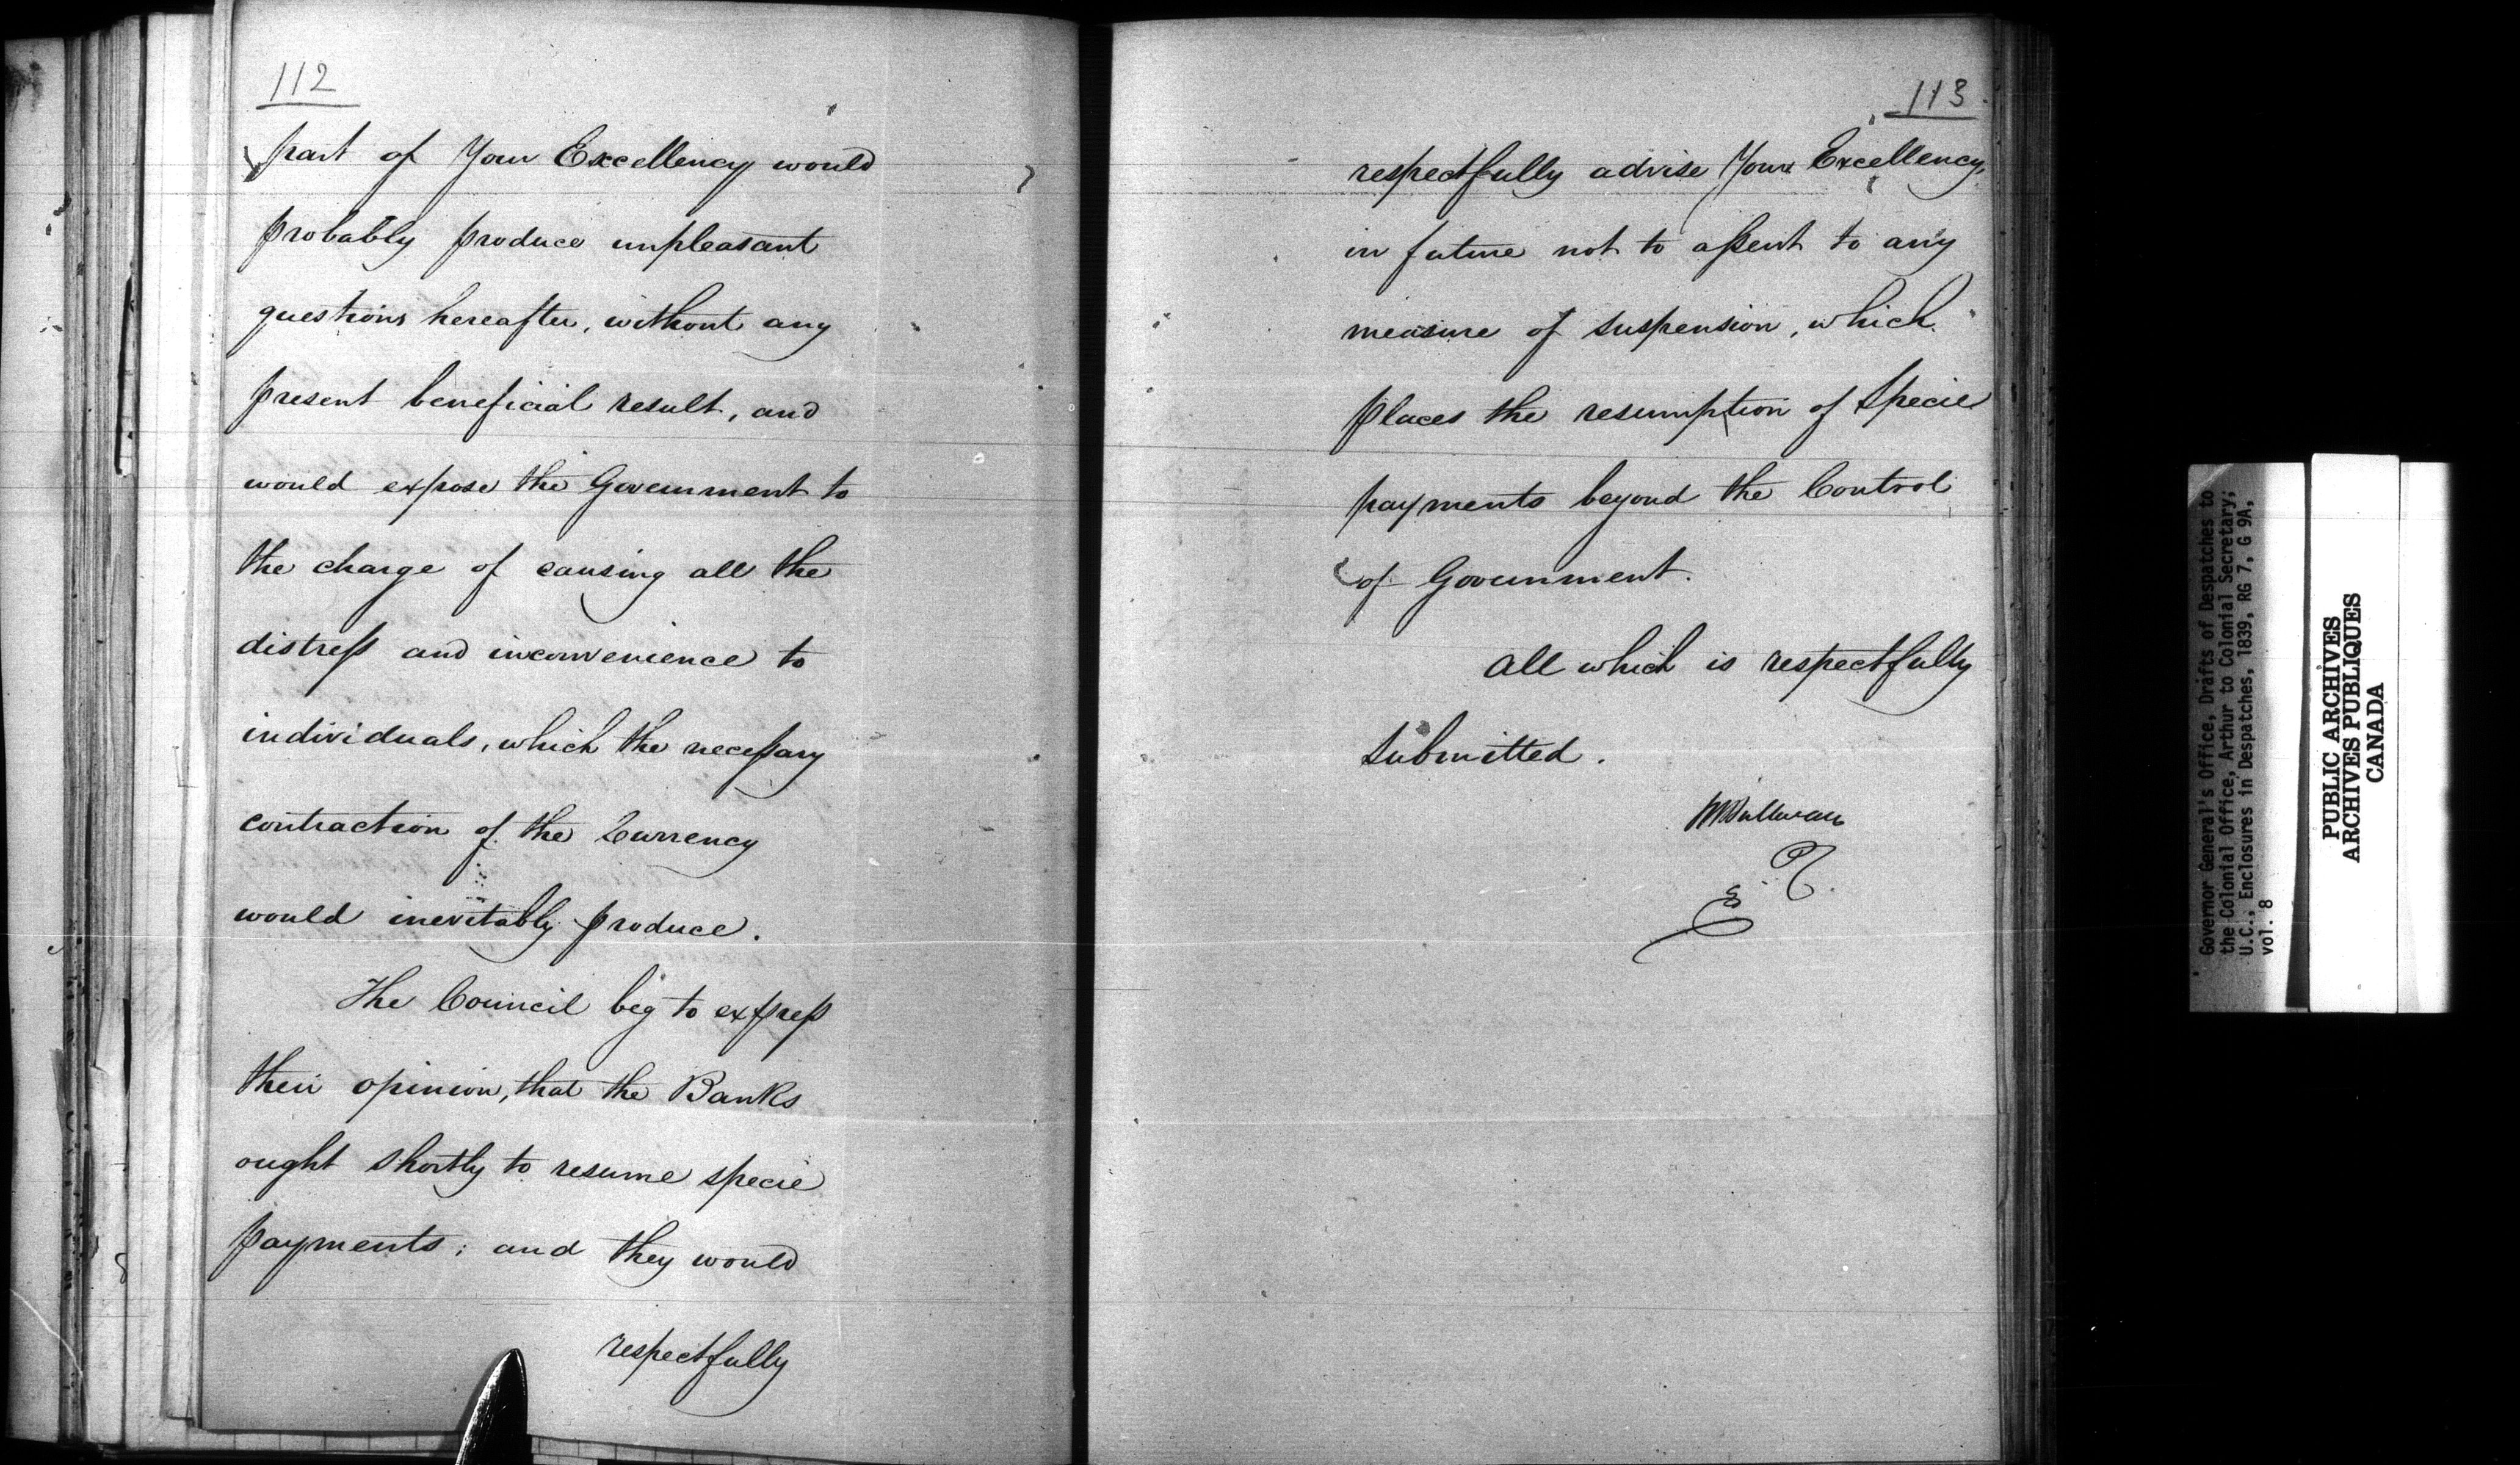 112
part of Your Excellency would
probably produce unpleasant
questions hereafter, without any
present beneficial result, and
would expose the Government to
the charge of causing all the
distress and inconvenience to
individuals, which the necessary
contraction of the Currency
would inevitably produce.
The Council beg to express
their opinion, that the Banks
ought shortly to resume specie
payments; and they would
respectfully
113
respectfully advise Your Excellency,
in future not to assent to any
measure of suspension, which
places the resumption of Specie
payments beyond the Control
of Government.
All which is respectfully
submitted.
Sullivan
Governor General's Office, Drafts of Despatches to
the Colonial Office, Arthur to Colonial Secretary;
U.C., Enclosures in Despatches, 1839, RG 7, G 9A,
vol. 8
PUBLIC ARCHIVES
ARCHIVES PUBLIQUES
CANADA